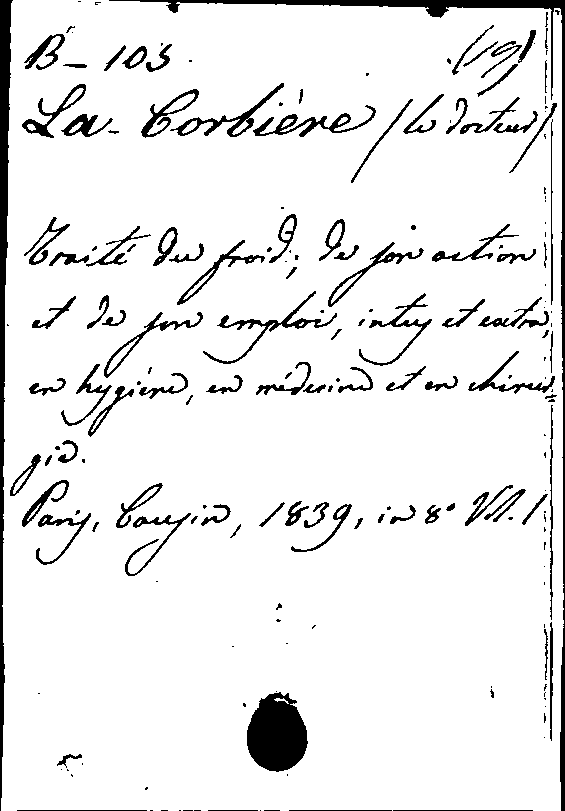 B – 103 (19)
La-Corbière (le docteur)
Traité du froid; de son action
et de son emploi, intus et extra,
en hygiène, en médecine et en chirur=
gie.
Paris, Cousin, 1839, in 8° Vol. 1